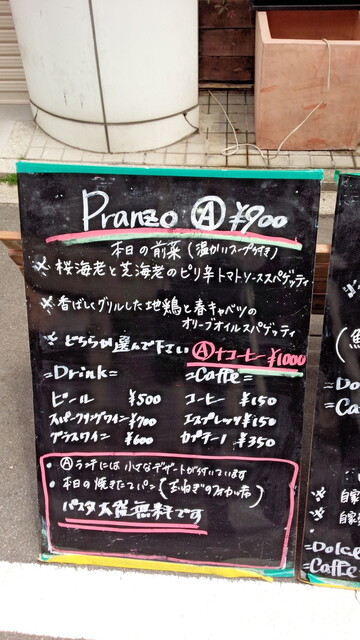 Pranzo Ⓐ ¥900
本日の前菜(温かいスープ付き)
※ 桜海老と芝海老のピリ辛トマトソーススパゲッティ
※ 香ばしくグリルした地鶏と春キャベツの
オリーブオイルスパゲッティ
※ どちらか選んで下さい Ⓐ+コーヒー ¥1000
=Drink=
ビール ¥500
スパークリングワイン ¥700
グラスワイン ¥600
=Caffe=
コーヒー ¥150
エスプレッソ ¥150
カプチーノ ¥350
• Ⓐランチには小さなデザートが付いています
• 本日の焼きたてパン(玉ねぎのフォカッチャ)
パスタ大盛無料です
(魚
=Do
=Ca
※ 自家
※ 自家
=Dolce
=Caffe=